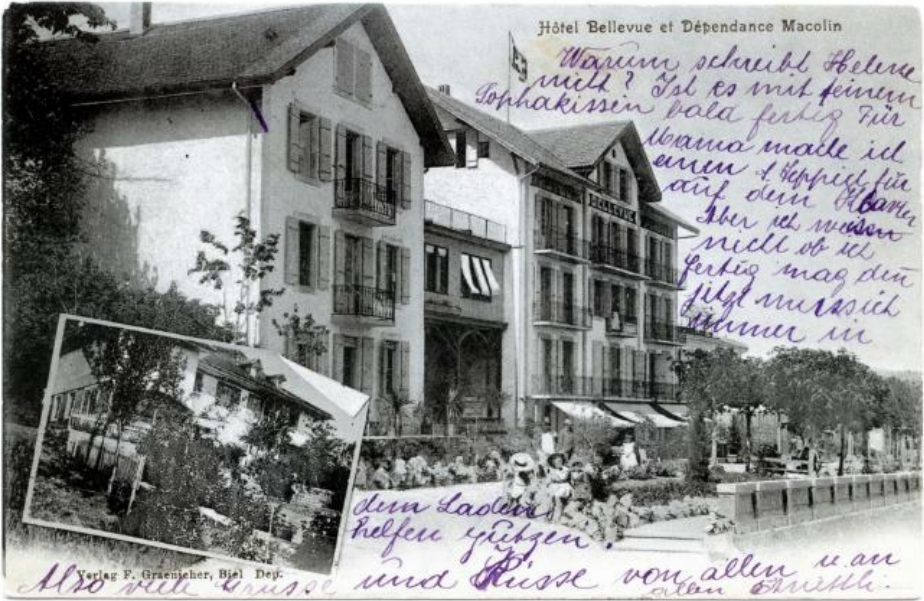 Hôtel Bellevue et Dépendance Macolin
Warum schreibt Helene
nicht? Ist es mit seinem
Sophakissen bald fertig Für
Mama mache ich
einen Teppich für
auf dem Klavier
Aber ich weiss
nicht ob ich
fertig mag den
jetzt muss ich
immer in
BELLEVUE
dem Laden
helfen
Verlag F. Graenicher, Biel Dep.
Also viele Grüsse und Küsse von allen u. an
allen